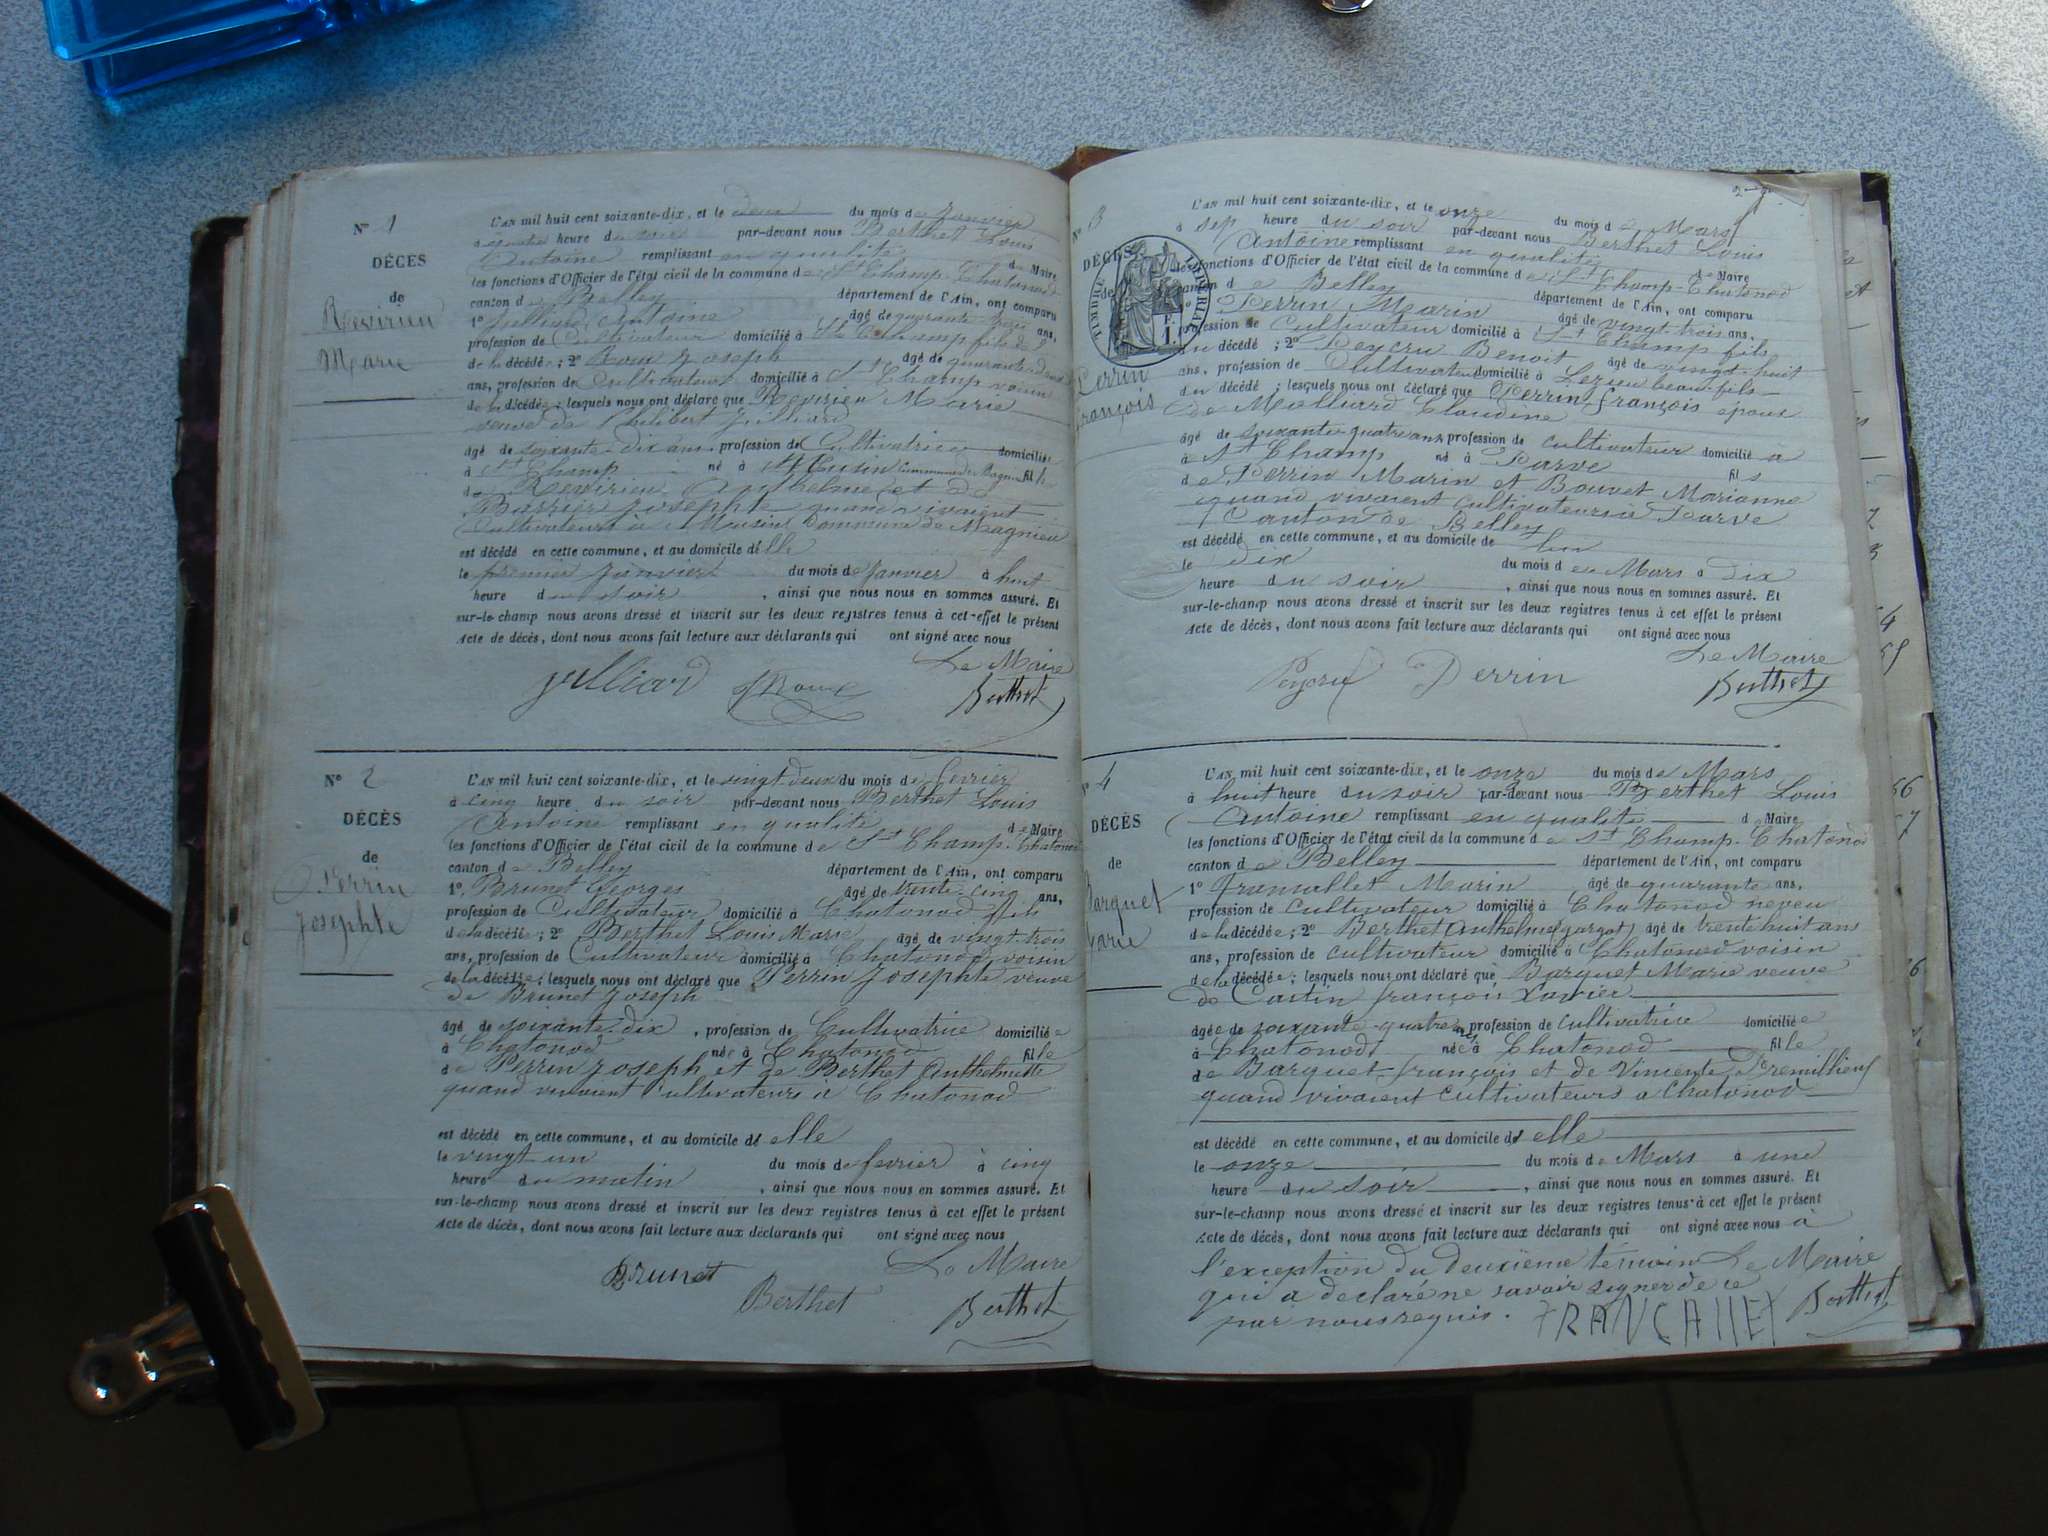 N° 1
DÉCÈS
de
Revirieu
Marie
L'AN mil huit cent soixante-dix, et le deux du mois de Janvier
à quatre heure du soir par-devant nous Berthet Louis
Antoine remplissant en qualité de Maire
les fonctions d'Officier de l'état civil de la commune de St Champ-Chatonod
canton de Belley département de l'Ain, ont comparu
1° Julliard Antoine âgé de quarante trois ans,
profession de Cultivateur domicilié à St Champ fils de
de la décédée ; 2° Roux Joseph âgé de quarante deux
ans, profession de Cultivateur domicilié à St Champ voisin
de la décédée ; lesquels nous ont déclaré que Revirieu Marie
veuve de Philibert Julliard
âgé de soixante-dix ans profession de Cultivatrice domiciliée
à St Champ né à Musin Commune de Magnieu fille
de Revirieu Anthelme et de
Barrier Josephte quand vivaient
Cultivateurs à Musin Commune de Magnieu
est décédé en cette commune, et au domicile d'elle
le premier Janvier du mois de Janvier à huit
heure du soir , ainsi que nous nous en sommes assuré. Et
sur-le-champ nous avons dressé et inscrit sur les deux registres tenus à cet effet le présent
Acte de décès, dont nous avons fait lecture aux déclarants qui ont signé avec nous
Le Maire
Julliard JRoux Berthet
N° 2
DÉCÈS
de
Perrin
Josephte
L'AN mil huit cent soixante-dix, et le vingt deux du mois de fevrier
à cinq heure du soir par-devant nous Berthet Louis
Antoine remplissant en qualité de Maire
les fonctions d'Officier de l'état civil de la commune de St Champ-Chatonod
canton de Belley département de l'Ain, ont comparu
1° Brunet Georges âgé de trente-cinq ans,
profession de Cultivateur domicilié à Chatonod fils
de la décédée ; 2° Berthet Louis Marie âgé de vingt-trois
ans, profession de Cultivateur domicilié à Chatonod voisin
de la décédée ; lesquels nous ont déclaré que Perrin Josephte veuve
de Brunet Joseph
âgé de soixante-dix , profession de Cultivatrice domiciliée
à Chatonod née à Chatonod fille
de Perrin Joseph et de Berthet Anthelmette
quand vivaient Cultivateurs à Chatonod
est décédé en cette commune, et au domicile d'elle
le vingt un du mois de fevrier à cinq
heure du matin , ainsi que nous nous en sommes assuré. Et
sur-le-champ nous avons dressé et inscrit sur les deux registres tenus à cet effet le présent
Acte de décès, dont nous avons fait lecture aux déclarants qui ont signé avec nous
Le Maire
Brunet Berthet Berthet
N° 3
DÉCÈS
de
TIMBRE IMPERIAL
Perrin
François
L'AN mil huit cent soixante-dix, et le onze du mois de Mars
à sep heure du soir par-devant nous Berthet Louis
Antoine remplissant en qualité de Maire
les fonctions d'Officier de l'état civil de la commune de St Champ-Chatonod
canton de Belley département de l'Ain, ont comparu
1° Perrin Marin âgé de vingt-trois ans,
profession de Cultivateur domicilié à St Champ fils
du décédé ; 2° Peycru Benoit âgé de vingt-huit
ans, profession de Cultivateur domicilié à Lezieu beau-fils
du décédé ; lesquels nous ont déclaré que Perrin françois epoux
de Molliard Claudine
âgé de soixante-quatre ans profession de cultivateur domicilié à
à St Champ né à Parve fils
de Perrin Marin et Bouvet Marianne
quand vivaient cultivateurs à Parve
Canton de Belley
est décédé en cette commune, et au domicile de lui
le dix du mois de Mars à dix
heure du soir , ainsi que nous nous en sommes assuré. Et
sur-le-champ nous avons dressé et inscrit sur les deux registres tenus à cet effet le présent
Acte de décès, dont nous avons fait lecture aux déclarants qui ont signé avec nous
Le Maire
Peycru Perrin Berthet
N° 4
DÉCÈS
de
Barquet
Marie
L'AN mil huit cent soixante-dix, et le onze du mois de Mars
à huit heure du soir par-devant nous Berthet Louis
Antoine remplissant en qualité de Maire
les fonctions d'Officier de l'état civil de la commune de St Champ-Chatonod
canton de Belley département de l'Ain, ont comparu
1° Francallet Marin âgé de quarante ans,
profession de cultivateur domicilié à Chatonod neveu
de la décédée ; 2° Berthet Anthelme (gargot) âgé de trente huit ans
ans, profession de cultivateur domicilié à Chatonod voisin
de la décédée ; lesquels nous ont déclaré que Barquet Marie veuve
de Castin françois Xavier
âgée de soixante-quatre ans profession de cultivatrice domiciliée
à Chatonod née à Chatonod fille
de Barquet françois et de Vincente Dremillieux
quand vivaient cultivateurs à Chatonod
est décédé en cette commune, et au domicile d'elle
le onze du mois de Mars à une
heure du soir , ainsi que nous nous en sommes assuré. Et
sur-le-champ nous avons dressé et inscrit sur les deux registres tenus à cet effet le présent
Acte de décès, dont nous avons fait lecture aux déclarants qui ont signé avec nous à
l'exception du deuxième témoin Le Maire
qui a déclaré ne savoir signer de ce
par nous requis. FRANCALLET Berthet